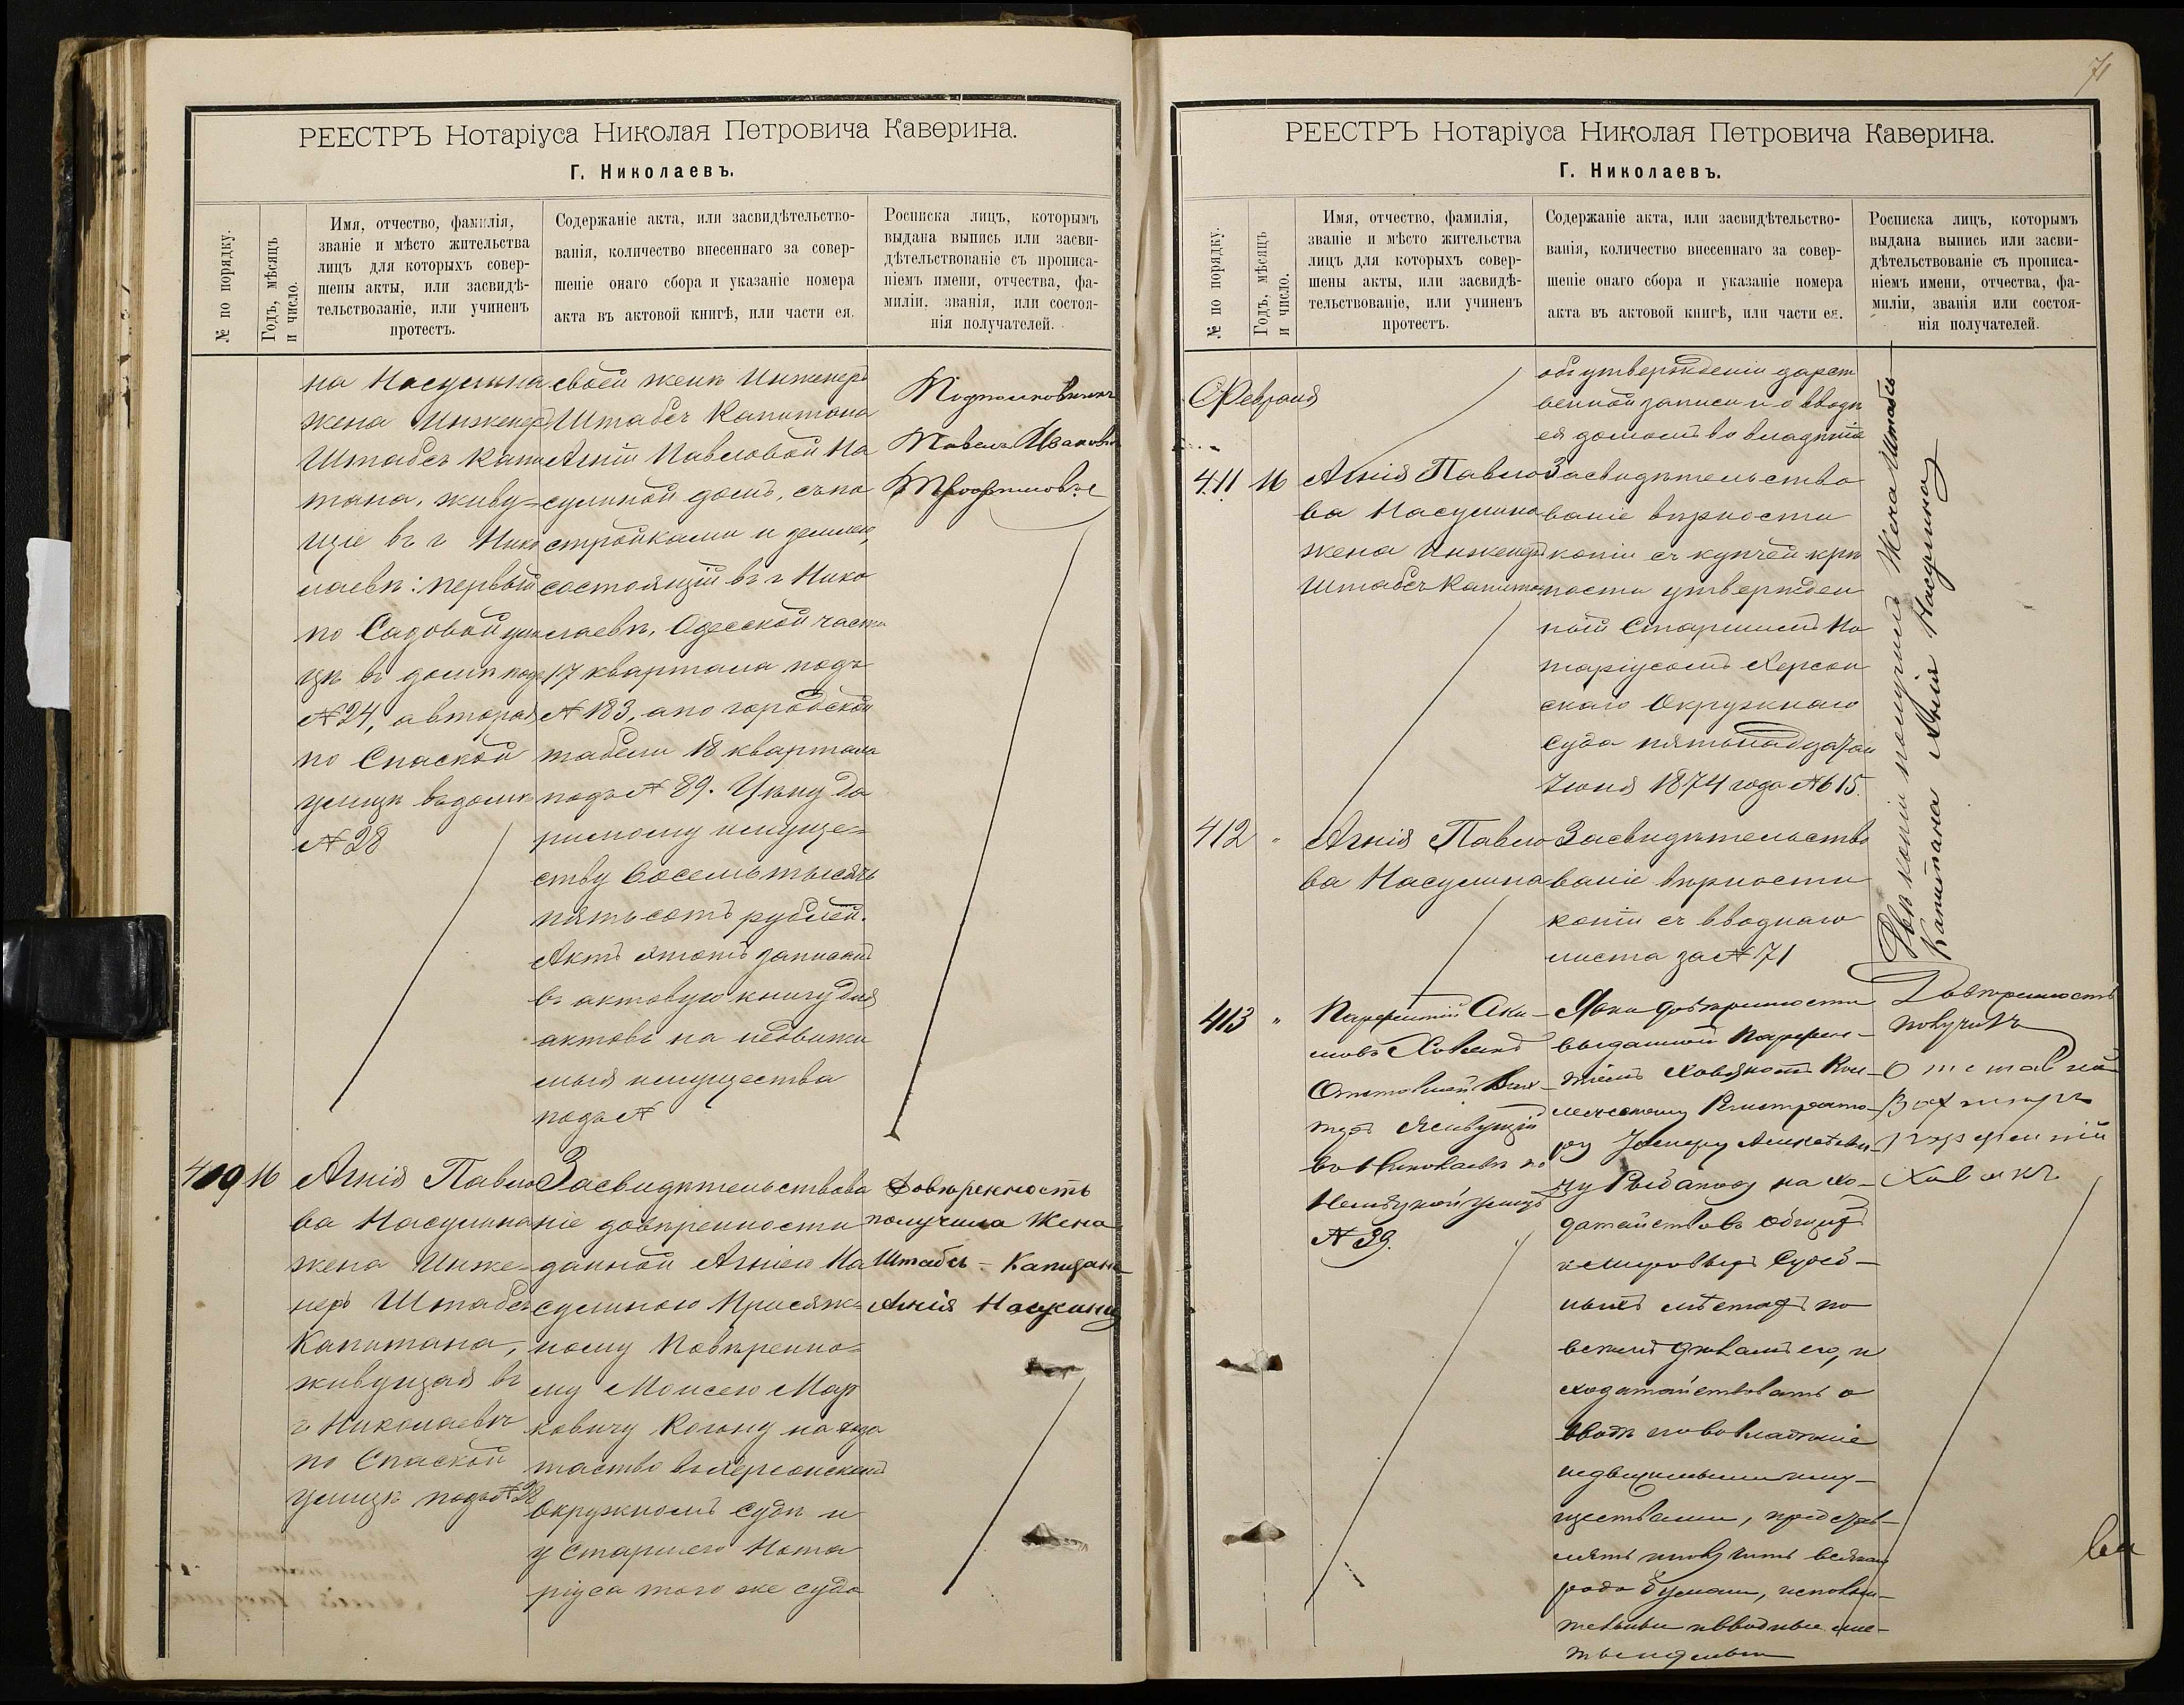 РЕЕСТРЪ Нотаріуса Николая Петровича Каверина.
Г. Николаевъ.
№ по порядку.
Годъ, мѣсяцъ
и число.
Имя, отчество, фамилія,
званіе и мѣсто жительства
лицъ для которыхъ совер-
шены акты, или засвидѣ-
тельствованіе, или учиненъ
протестъ.
Содержаніе акта, или засвидѣтельство-
ванія, количество внесеннаго за совер-
шеніе онаго сбора и указаніе номера
акта въ актовой книгѣ, или части ея.
Росписка лицъ, которымъ
выдана выпись или засви-
дѣтельствованіе съ прописа-
ніемъ имени, отчества, фа-
миліи, званія, или состоя-
нія получателей.
на Насулина
жена Инженеръ
Штабсъ Капи
тана, живу=
щіе въ г Нико
лаевѣ: первый
по Садовой ули
цѣ въ домѣ подъ
№ 24, а вторая
по Спаской
улицѣ въ домѣ
№ 28
своей женѣ Инженеръ
Штабсъ Капитана
Агніи Павловой На
сулиной домъ, съ по
стройками и землею,
состоящій въ г Нико
лаевѣ, Одесской части
17 квартала подъ
№ 183, а по городской
табели 18 квартала
подъ № 89. Цѣну да
римому имуще=
ству восемь тысячъ
пятьсотъ рублей.
Актъ этотъ записанъ
въ актовую книгу для
актовъ на недвижи
мыя имущества
подъ №
Подполковникъ
Павелъ Ивановъ
409 16 Агнія Павло
ва Насулина
жена Инже=
неръ Штабсъ
Капитана,
живущая въ
г. Николаевѣ
по Спаской
улицѣ подъ № 28
Засвидѣтельствова
ніе довѣренности
данной Агніею На
сулиною Присяж=
ному Повѣренно=
му Моисею Мар
ковичу Когону на хода
тайство въ Херсонскомъ
Окружномъ Судѣ и
у Старшаго Нота
ріуса того же суда
Довѣренность
получила Жена
Штабсъ-Капитана
Агнія Насулина
71
РЕЕСТРЪ Нотаріуса Николая Петровича Каверина.
Г. Николаевъ.
№ по порядку.
Годъ, мѣсяцъ
и число.
Имя, отчество, фамилія,
званіе и мѣсто жительства
лицъ для которыхъ совер-
шены акты, или засвидѣ-
тельствованіе, или учиненъ
протестъ.
Содержаніе акта, или засвидѣтельство-
ванія, количество внесеннаго за совер-
шеніе онаго сбора и указаніе номера
акта въ актовой книгѣ, или части ея.
Росписка лицъ, которымъ
выдана выпись или засви-
дѣтельствованіе съ прописа-
ніемъ имени, отчества, фа-
миліи, званія или состоя-
нія получателей.
Февраля
объ утвержденіи дарст
венной записи и о вводѣ
ея домомъ во владѣніе
411 16 Агнія Павло
ва Насулина
жена Инженеръ
Штабсъ Капитан
Засвидѣтельство
ваніе вѣрности
копіи съ купчей крѣ
пости утвержден
ной Старшимъ Но
таріусомъ Херсон
скаго Окружнаго
Суда пятьнадцатаго
Іюня 1874 года № 615.
412 " Агнія Павло
ва Насулина
Засвидѣтельство
ваніе вѣрности
копіи съ вводнаго
листа за № 71
Двѣ копіи получила Жена Штабсъ
Капитана Агнія Насулина
413 " Парфентій Аки-
мовъ Ховякъ
Отставной Вах-
теръ живущій
въ Николаевѣ по
улицѣ
№ 39.
Явка довѣренности
выданной Парфен-
тіемъ Ховякомъ Кол-
лежскому Регистрато-
ру
цу Рыбакову на хо-
датайство въ общихъ
и мировыхъ Судеб-
ныхъ мѣстахъ по
всѣмъ дѣламъ его, и
ходатайствовать о
вводѣ во владѣніе
недвижимыми иму-
ществами, представ-
лять и получать всякаго
рода бумаги, исполни-
тельные и вводные лис-
ты
Довѣренность
получилъ
Отставной
Вахтеръ
Парфентій
Ховякъ